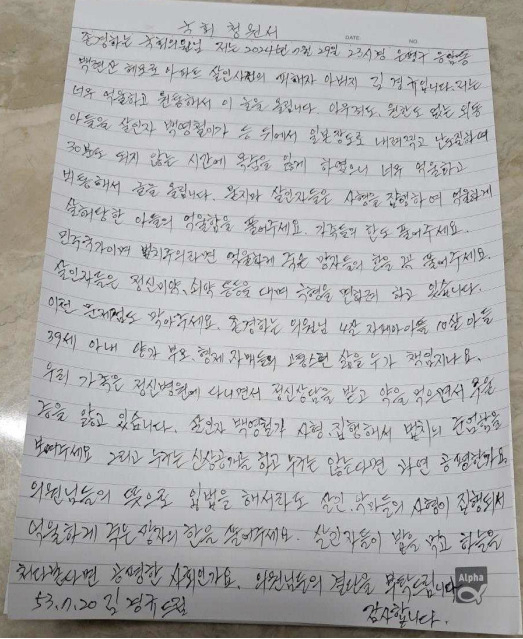 국회 청원서
DATE. NO.
존경하는 국회의원님 저는 2024년 7월 29일 23시경 은평구 응암동
백련산 헤모로아파트 살인사건의 피해자 아버지 김경규입니다. 저는
너무 억울하고 원통해서 이 글을 올립니다. 아무죄도, 원한도 없는 외동
아들을 살인자 백영철이가 등 뒤에서 일본장도로 내려찍고 난도질하여
30분도 되지 않는 시간에 목숨을 잃게 하였으니 너무 억울하고
비통해서 글을 올립니다. 살인자들은 사형을 집행하여 억울하게
살해당한 아들의 억울함을 풀어주세요. 가족들의 한도 풀어주세요.
민주국가이며 법치주의라면 억울하게 죽은 망자들의 한을 꼭 풀어주세요.
살인자들은 정신이약, 쇠약 등등을 대며 극형을 면하려 하고 있습니다.
이런 문제점도 막아주세요. 존경하는 의원님 4살 자폐아아들 10살 아들
39세 아내 양가 부모, 형제 자매들의 고통스런 삶을 누가 책임지나요.
우리 가족은 정신병원에 다니면서 정신상담을 받고 약을 먹으면서 후유
증을 앓고 있습니다. 살인자 백영철가 사형, 집행해서 법치의 준엄함을
보여주세요 그리고 누구는 신상공개를 하고 누구는 않는다면 과연 공평한가요
의원님들의 뜻으로 입법을 해서라도 살인, 악하들의 사형이 집행되서
억울하게 죽은 망자의 한을 풀어주세요. 살인자들이 밥을 먹고 하늘을
쳐다본다면 공평한 사회인가요. 의원님들의 결단을 부탁드립니다
53.7.20 김경규드림 감사합니다.
Alpha